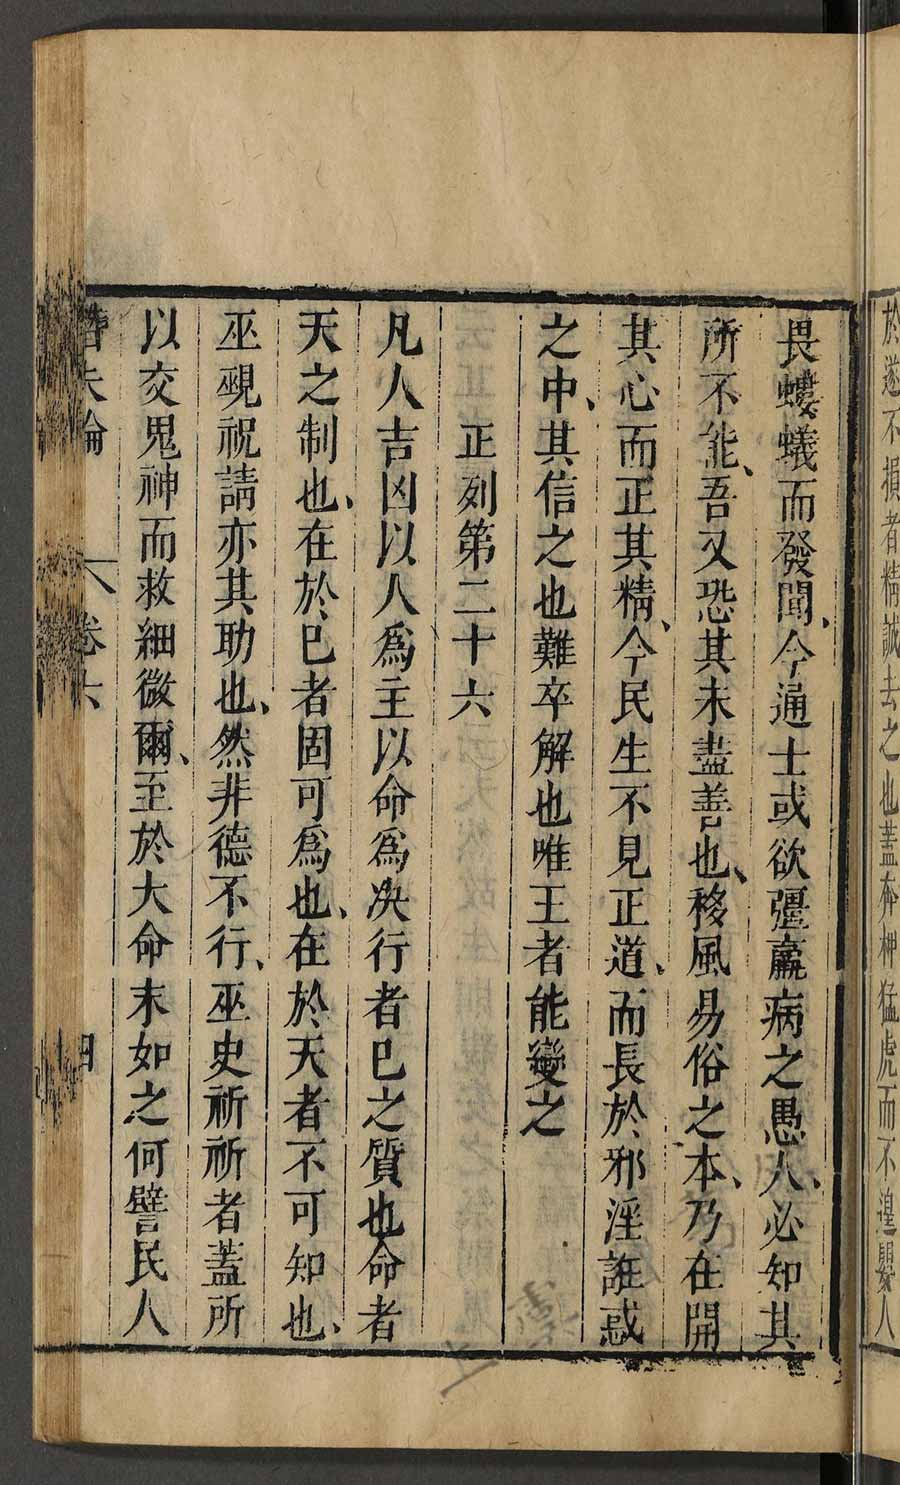 於遂不損者精誠去之也蓋奔柙猛虎而不遑嬰人
畏螻蟻而發聞、今通士或欲彊羸病之愚人、必知其
所不能、吾又恐其未盡善也、移風易俗之本、乃在開
其心而正其精、今民生不見正道、而長於邪淫誑惑
之中、其信之也難卒解也唯王者能變之
正列第二十六
凡人吉凶以人爲主以命爲决行者巳之質也命者
天之制也、在於巳者固可爲也、在於天者不可知也、
巫覡祝請亦其助也、然非德不行、巫史祈祈者蓋所
以交鬼神而救細微爾、至於大命末如之何譬民人
夫論 卷六 四